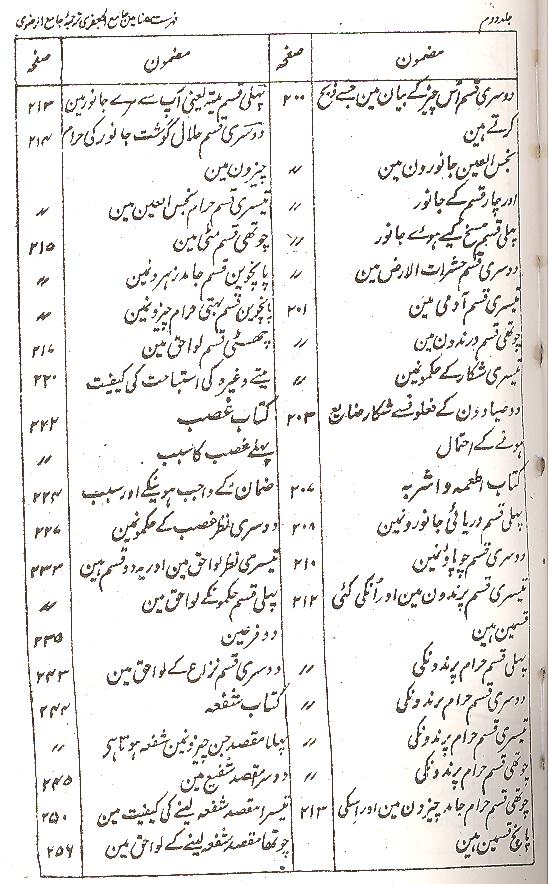 جلد دوم
فہرست مضامین جامع الجعفری ترجمۂ جامع الرضوی
مضمون صفحہ
دوسری قسم اُس چیز کے بیان مین جسے ذبح ۲۰۰
کرتے ہین
نجس العین جانورون مین 〃
اور چار قسم کے جانور 〃
پہلی قسم مسخ کیے ہوے جانور 〃
دوسری قسم حشرات الارض مین 〃
تیسری قسم آدمی مین ۲۰۱
چوتھی قسم درندون مین 〃
تیسری شکار کے حکمونمین 〃
دو صیادون کے فعلونسے شکار ضایع ۲۰۳
ہونے کے احتمال
کتاب اطعمہ و اشربہ ۲۰۷
پہلی قسم دریائی جانورونمین ۲۰۸
دوسری قسم چوپاؤنمین ۲۱۰
تیسری قسم پرندون مین اور اُنکی کئی ۲۱۲
قسمین ہین
پہلی قسم حرام پرندونکی 〃
دوسری قسم حرام پرندونکی 〃
تیسری قسم حرام پرندونکی 〃
چوتھی قسم حرام پرندونکی 〃
چوتھی قسم حرام جامد چیزون مین اور اسکی ۲۱۳
پانچ قسمین ہین
مضمون صفحہ
پہلی قسم میتہ یعنی آپ سے مرے جانور مین ۲۱۳
دوسری قسم حلال گوشت جانور کی حرام ۲۱۴
چیزون مین
تیسری قسم حرام نجس العین مین 〃
چوتھی قسم مٹی مین ۲۱۵
پانچوین قسم جامد زہرونمین 〃
پانچوین قسم بہتی حرام چیزونمین 〃
چھٹی قسم لواحق مین ۲۱۷
میتے وغیرہ کی استباحت کی کیفیت ۲۲۰
کتاب غصب ۲۲۲
پہلے غصب کا سبب 〃
ضمان کے واجب ہونیکے اور سبب ۲۲۴
دوسری نظر غصب کے حکمونمین ۲۲۷
تیسری نظر لواحق مین اور یہ دو قسم ہین ۲۳۳
پہلی قسم حکمونکے لواحق مین 〃
دو فرعین ۲۳۵
دوسری قسم نزاع کے لواحق مین ۲۴۳
کتاب شفعہ ۲۴۴
پہلا مقصد جن چیزونمین شفعہ ہوتا ہی 〃
دوسرا مقصد شفیع مین ۲۴۵
تیسرا مقصد شفعہ لینے کی کیفیت مین ۲۵۰
چوتھا مقصد شفعہ لینے کے لواحق مین ۲۵۶